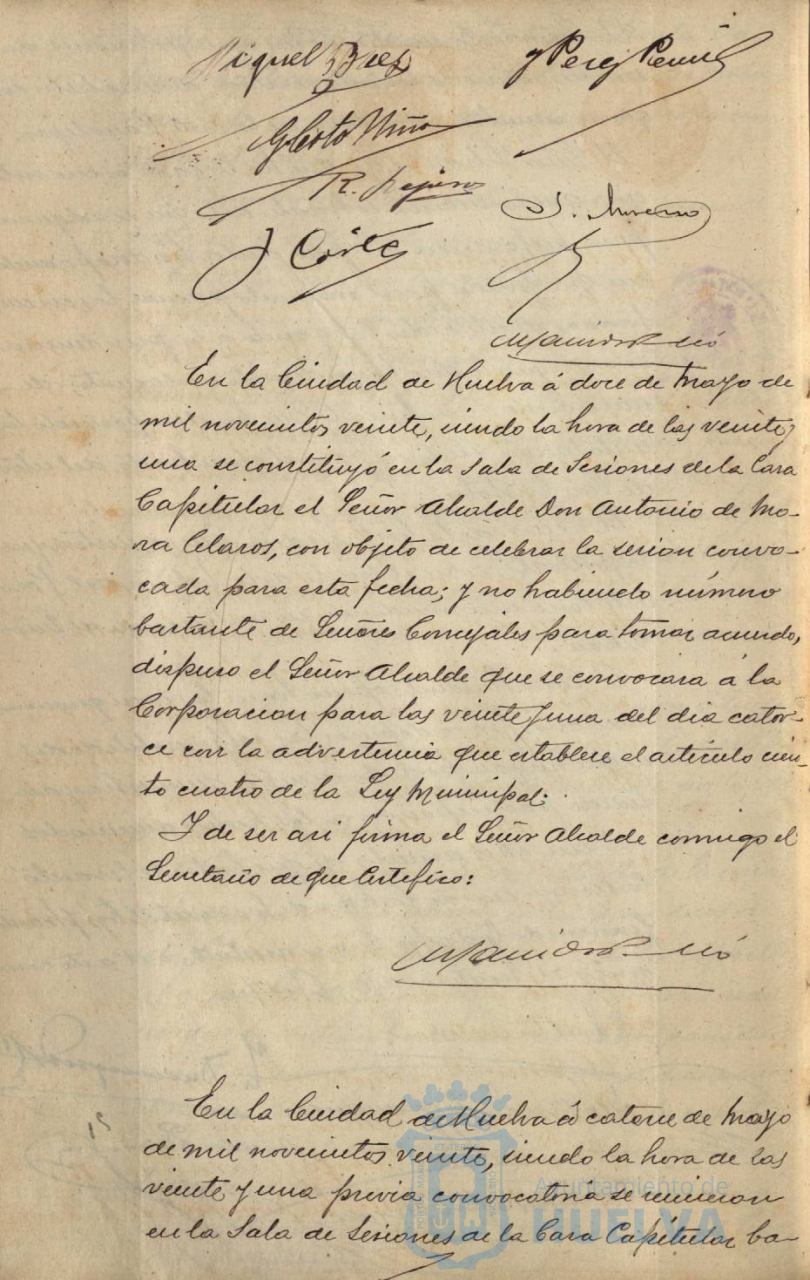 Miguel Baez
y Perez
Gilberto Niño
R.
J. Moreno
J Córte
En la Ciudad de Huelva á doce de Mayo de
mil novecientos veinte, siendo la hora de las veinte y
una se constituyó en la Sala de Sesiones de la Casa
Capitular el Señor Alcalde Don Antonio de Mo-
ra Claros, con objeto de celebrar la sesion convo-
cada para esta fecha; y no habiendo número
bastante de Señores Concejales para tomar acuerdo,
dispuso el Señor Alcalde que se convocara á la
Corporacion para las veinte y una del dia cator-
ce con la advertencia que establece el artículo cien-
to cuatro de la Ley Municipal.
Y de ser asi firma el Señor Alcalde conmigo el
Secretario de que Certifico:
En la Ciudad de Huelva á catorce de Mayo
de mil novecientos veinte, siendo la hora de las
veinte y una previa convocatoria se reunieron
en la Sala de Sesiones de la Casa Capitular ba-
Ayuntamiento de
HUELVA